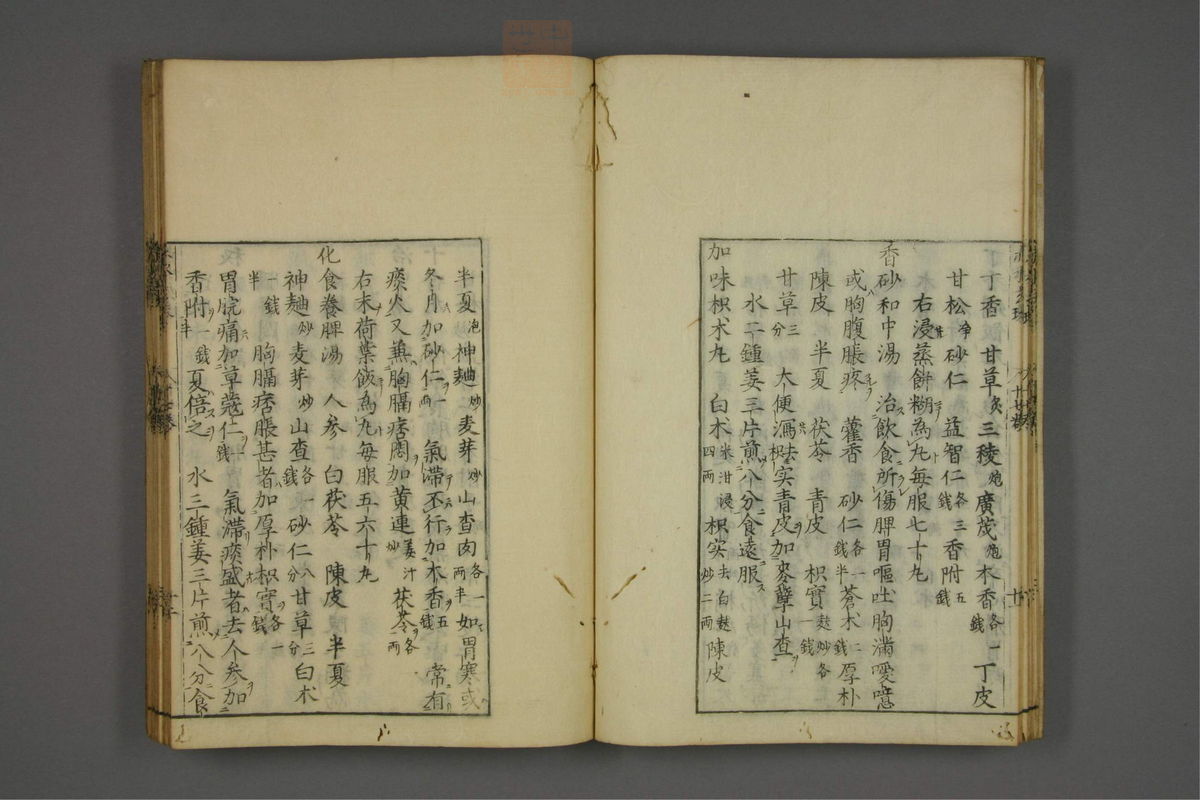 丁丁香 甘草炙 三稜炮 廣茂炮 木香各一錢 丁皮
甘松净 砂仁 益智仁各三錢 香附五錢
右浸蒸餅糊為丸毎服七十丸
香砂和中湯 治飲食所傷脾胃嘔吐胸滿噯噫
或胸腹脹疼 藿香 砂仁各一錢半 蒼术二錢 厚朴
陳皮 半夏 茯苓 青皮 枳實麩炒各一錢
甘草三分 大便瀉去枳实青皮加麥蘖山査
水二鍾姜三片煎八分食遠服
加味枳术丸 白术米泔浸四兩 枳实去白麩炒二兩 陳皮
半夏泡 神麯炒 麦芽炒 山査肉各一兩半 如胃寒或
冬月加砂仁一兩 氣滯不行加木香五錢 常有
痰火又兼胸膈痞悶加黄連姜汁炒 茯苓各一兩
右末荷葉飯為丸毎服五六十丸
化食養脾湯 人参 白茯苓 陳皮 半夏
神麯炒 麦芽炒 山査各一錢 砂仁八分 甘草三分 白朮
一錢半 胸膈痞脹甚者加厚朴枳實各一錢
胃脘痛加草蔻仁一錢 氣滯痰盛者去人参加
香附一錢半 夏倍之 水三鍾姜三片煎八分食